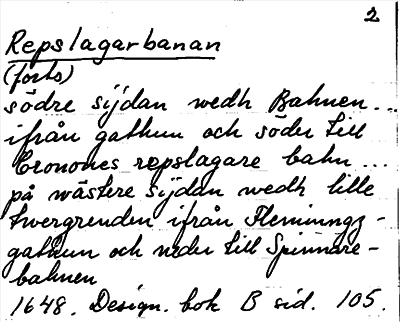 2
Repslagarbanan
(forts)
södre sijdan wedh Bahnen...
ifrån gathun och söder till
Cronones repslagare bahn ...
på wästere sijdan wedh lille
twergrenden ifrån Flemingz-
gathun och neder till Spinnare-
bahnen
1648. Design. bok B sid. 105.